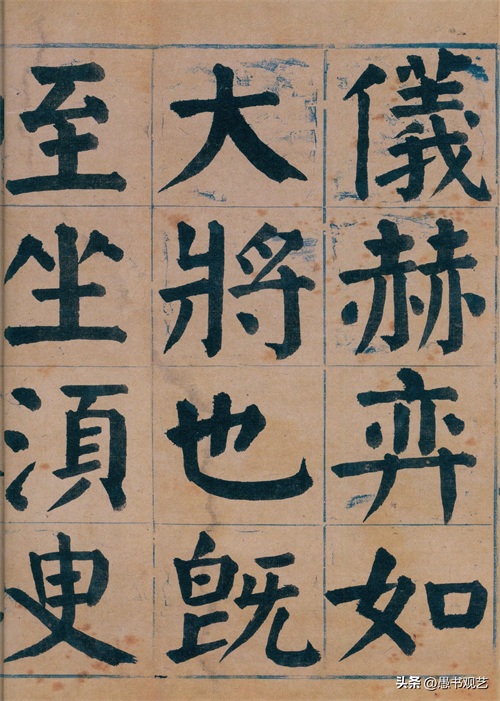 儀赫弈如
大將也既
至坐須叟
头条 @愚书观艺